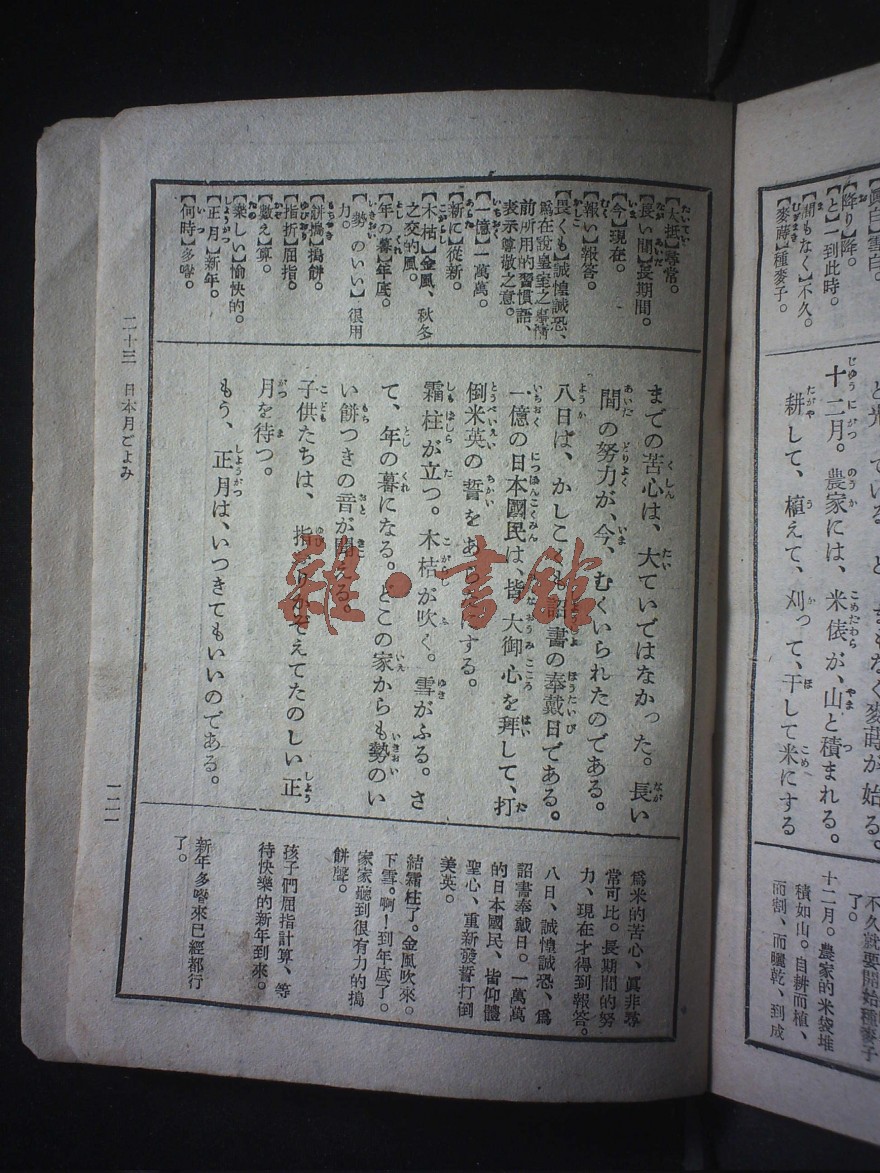 眞白】雪白。
【降り】降。
【と】一到此時。
【間もなく】不久。
【麥蒔】種麥子。
まもなく麥蒔が始る。
十二月。農家には、米俵が、山と積まれる。
耕して、植えて、刈って、干して米にする
不久就要開始種麥子
了。
十二月。農家的米袋堆
積如山。自耕而植、
而割、而曬乾、到成
【大抵】尋常。
【長い間】長期間。
【今】現在。
【報い】報答。
【畏くも】誠惶誠恐、
爲在說皇室之事情
前所用的習慣語、
表示尊敬之意。
【一億】一萬萬。
【新に】從新。
【木枯】金風、秋冬
之交的風。
【年の暮】年底。
【勢のいい】很用
力。
【餅搗】搗餅。
【指折】屈指。
【數え】算。
【樂しい】愉快的。
【正月】新年。
【何時】多喒。
までの苦心は、大ていではなかった。長い
間の努力が、今、むくいられたのである。
八日は、かしこくも詔書の奉戴日である。
一億の日本國民は、皆大御心を拜して、打
倒米英の誓をあらたにする。
霜柱が立つ。木枯が吹く。雪がふる。さ
て、年の暮になる。どこの家からも勢のい
い餅つきの音が聞える。
子供たちは、指おりかぞえてたのしい正
月を待つ。
もう、正月は、いつきてもいいのである。
爲米的苦心、眞非尋
常可比。長期間的努
力、現在才得到報答。
八日、誠惶誠恐、爲
詔書奉戴日。一萬萬
的日本國民、皆仰體
聖心、重新發誓打倒
美英。
結霜柱了。金風吹來。
下雪。啊！到年底了。
家家聽到很有力的搗
餅聲。
孩子們屈指計算、等
待快樂的新年到來。
新年多喒來已經都行
了。
二十三　日本月ごよみ
一二一
雜·書館